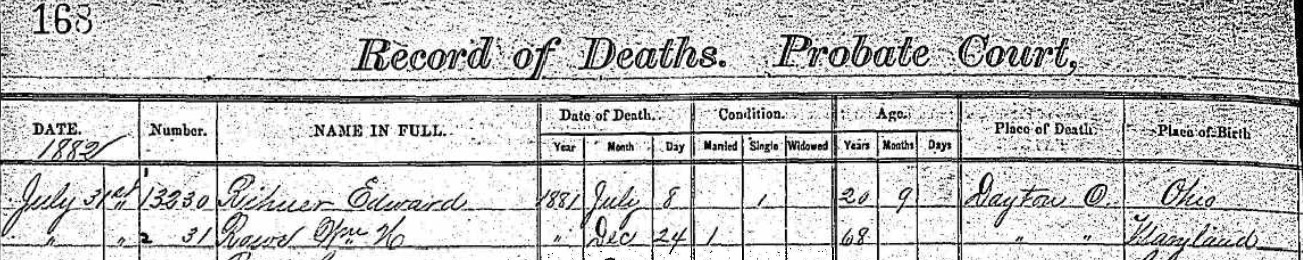 168
Record of Deaths. Probate Court,
DATE. Number. NAME IN FULL. Date of Death. Condition. Age. Place of Death. Place of Birth
1882 Year Month Day Married Single Widowed Years Months Days
July 31st 13230 Edward 1881 July 8 1 20 9 Dayton O. Ohio
" " 31 Wm H " Dec 24 1 68 " " Maryland